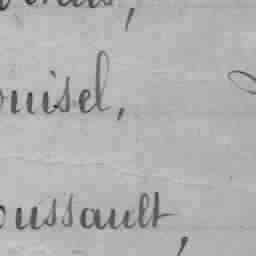 ouisel,
oussault,